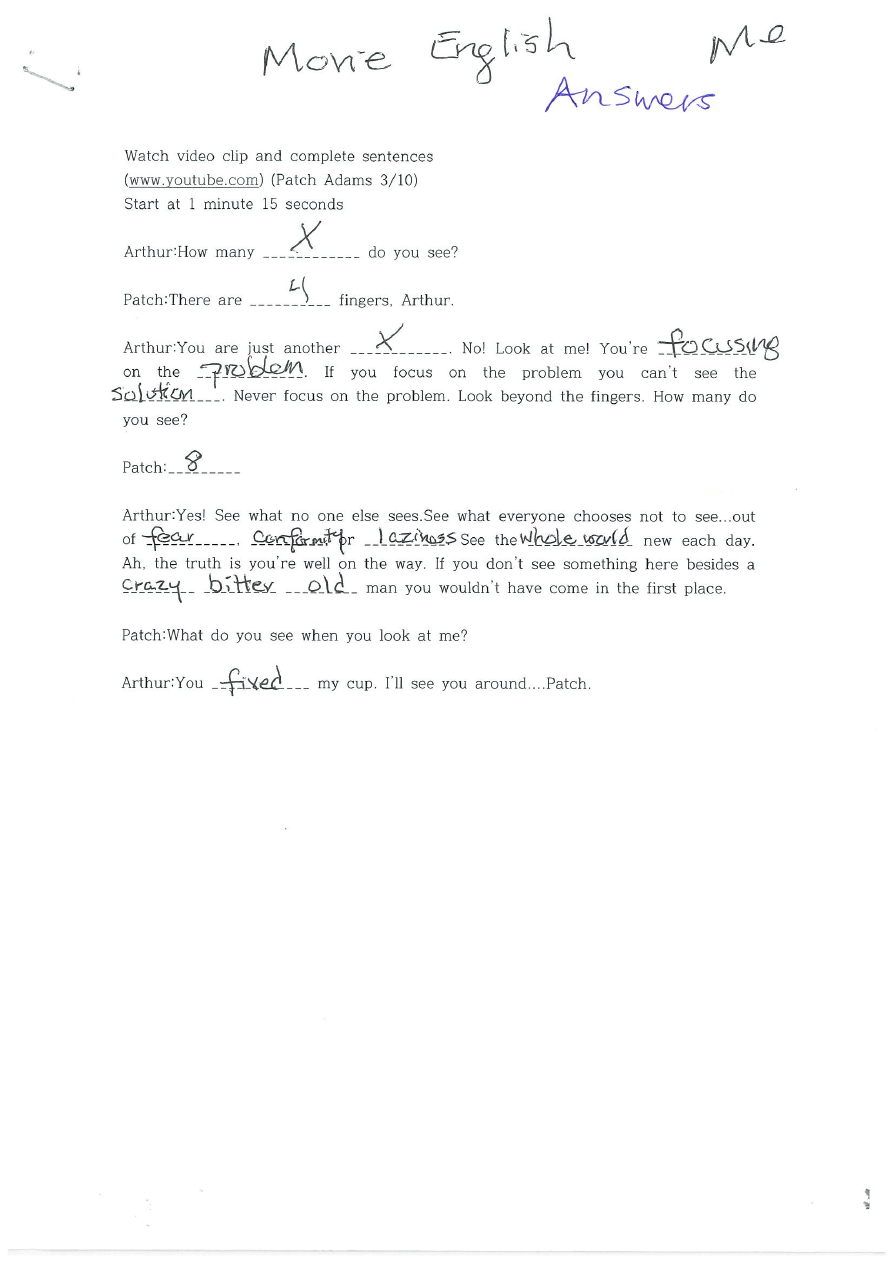 Movie English Me
Answers
Watch video clip and complete sentences
(www.youtube.com) (Patch Adams 3/10)
Start at 1 minute 15 seconds
Arthur:How many ____X____ do you see?
Patch:There are ____4____ fingers, Arthur.
Arthur:You are just another ____X____. No! Look at me! You're focussing
on the problem. If you focus on the problem you can't see the
solution___. Never focus on the problem. Look beyond the fingers. How many do
you see?
Patch:__8_____
Arthur:Yes! See what no one else sees.See what everyone chooses not to see...out
of fear_____, conformity or laziness See the whole world new each day.
Ah, the truth is you're well on the way. If you don't see something here besides a
crazy__ bitter ___old_ man you wouldn't have come in the first place.
Patch:What do you see when you look at me?
Arthur:You __fixed___ my cup. I'll see you around....Patch.